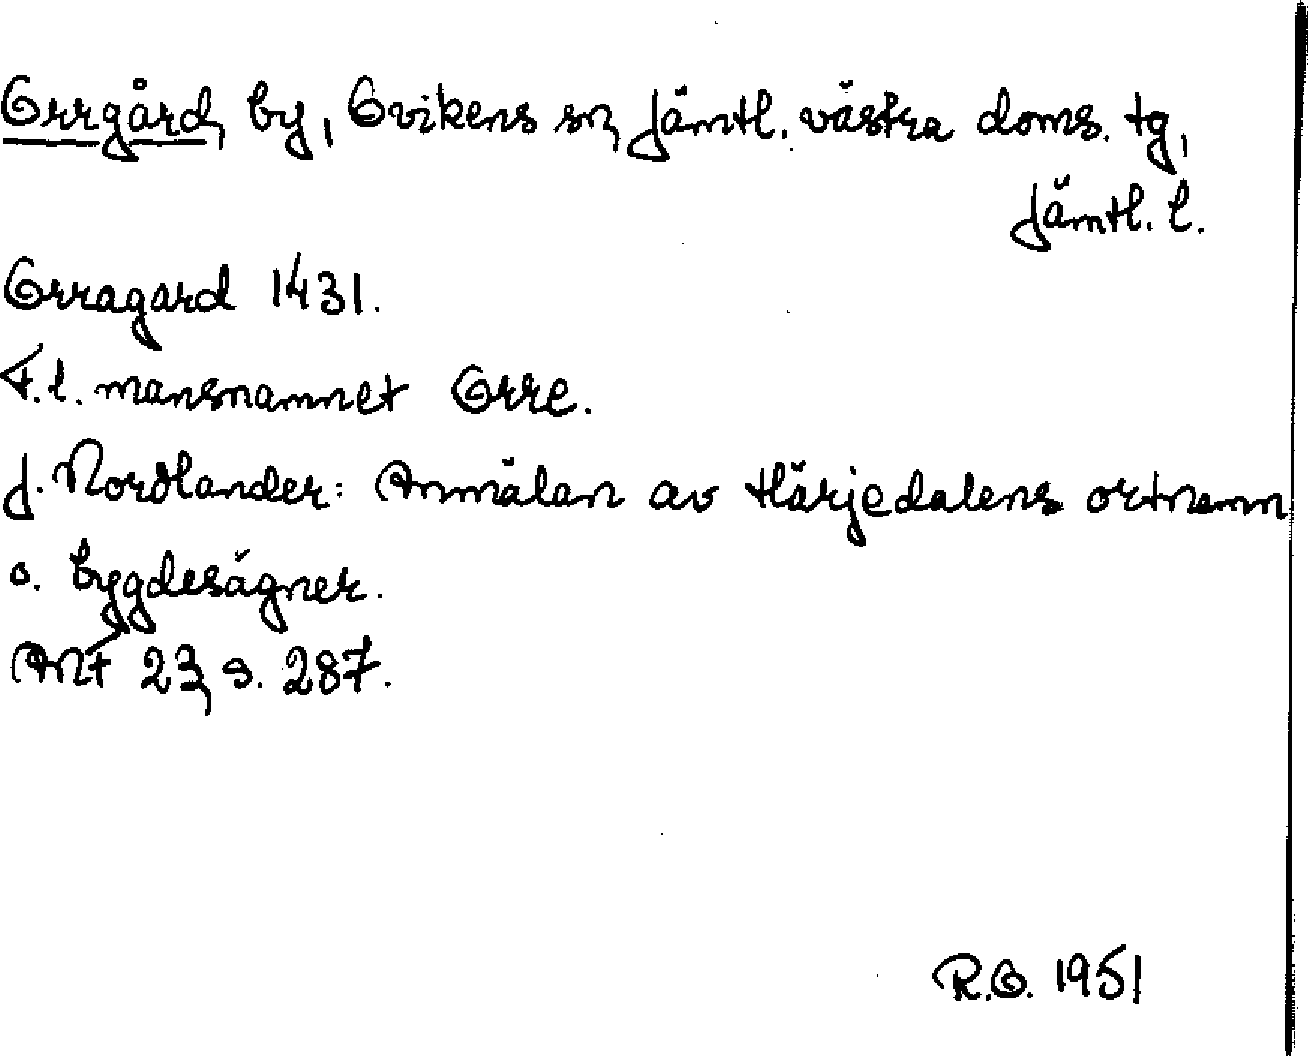 Orrgård, by, Ovikens sn, Jämtl. västra doms. tg,
Jämtl. l.
Orragard 1431.
F.l. mansnamnet Orre.
J. Nordlander: Anmälan av Härjedalens ortnamn
o. bygdesägner.
ANF 23, s. 287.
R.O. 1951